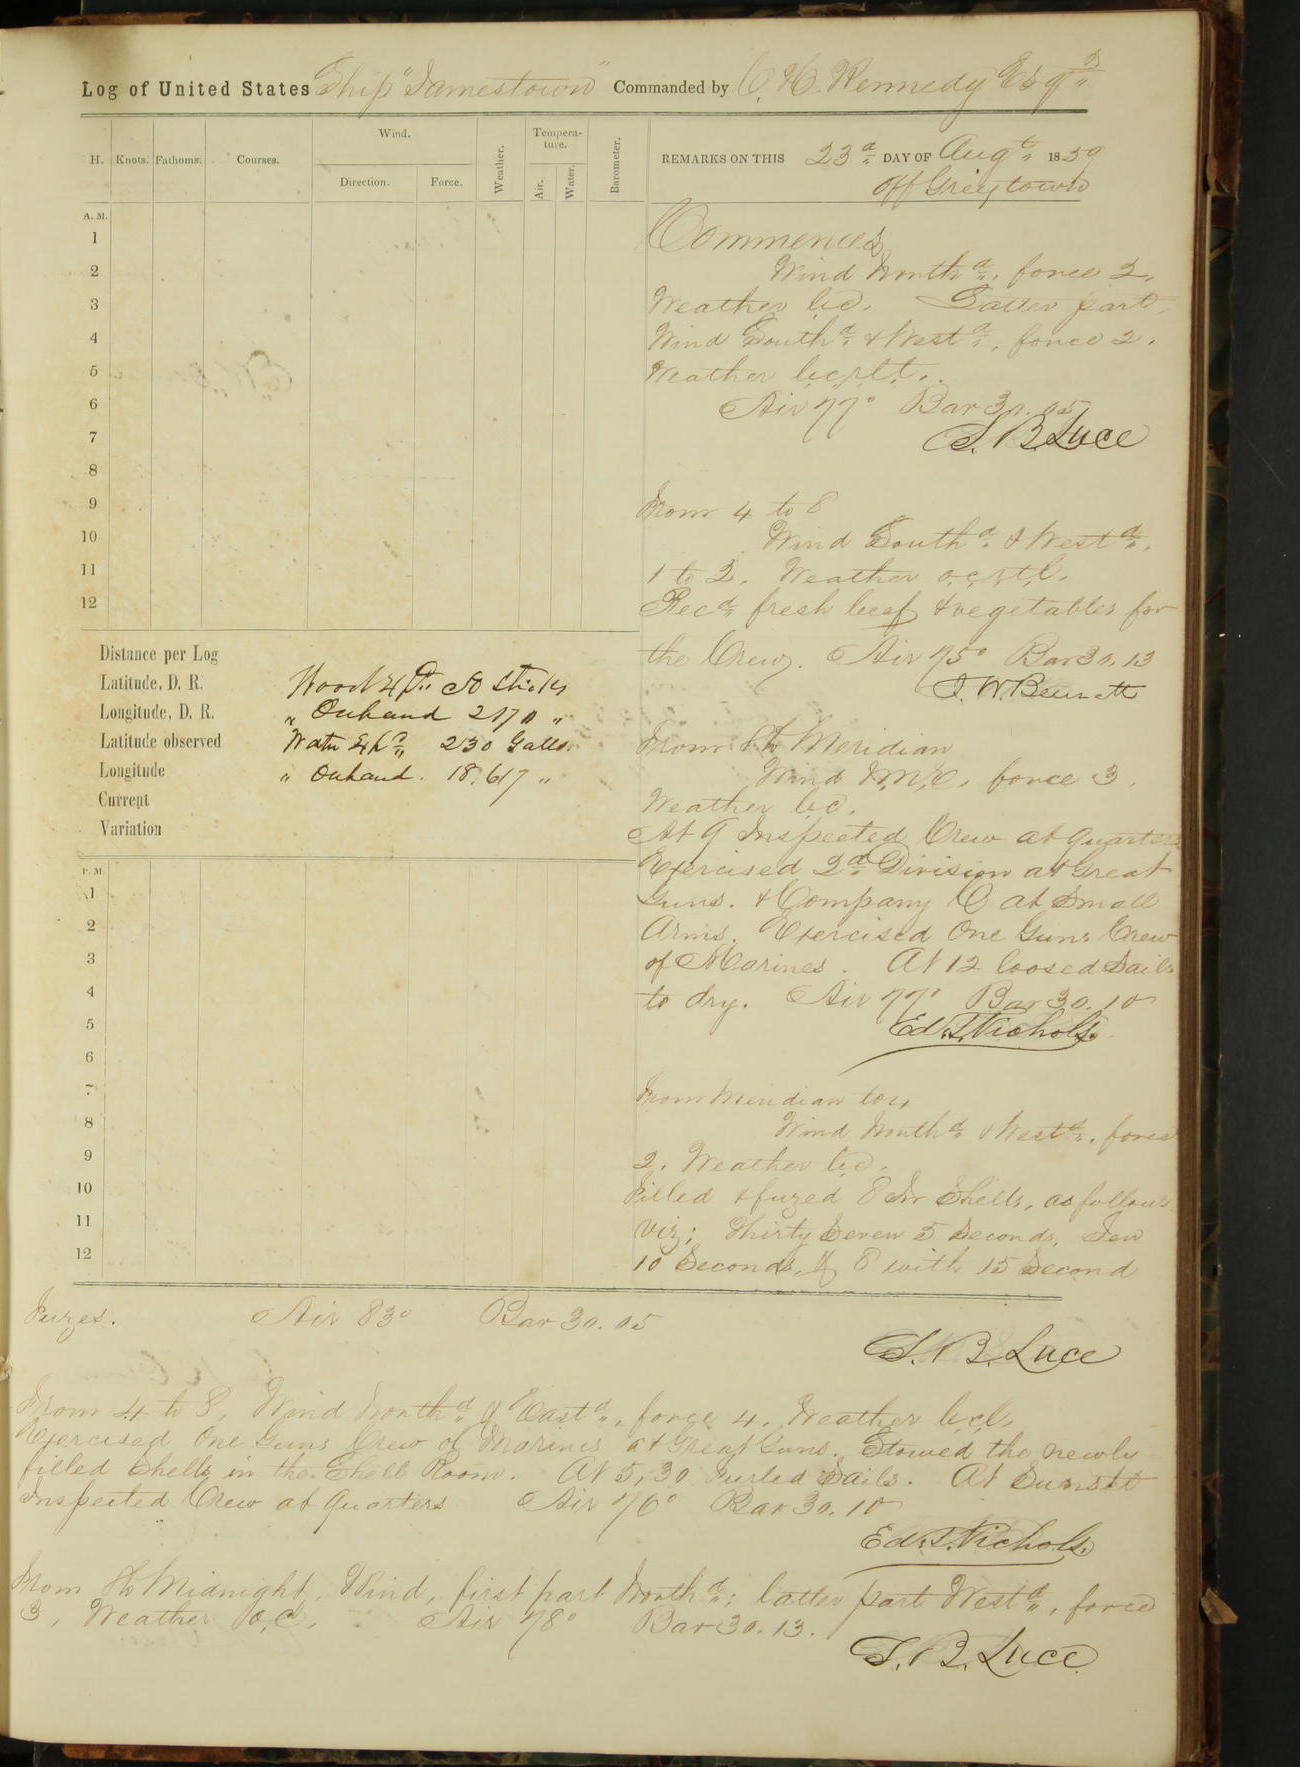 Log of United States Ship "Jamestown" Commanded by C. H. Kennedy Esqr
H. Knots. Fathoms. Courses. Wind. Direction. Force. Weather. Temperature. Air. Water. Barometer.
REMARKS ON THIS 23d DAY OF Augt 1859
Off Greytown
A. M.
1
2
3
4
5
6
7
8
9
10
11
12
Commences
Wind Northd, force 2,
Weather b.c. Latter part,
Wind Southd & Westd, force 2.
Weather b.c.r.l.t.
Air 77° Bar 30.05
S. B. Luce
From 4 to 8
Wind Southd & Westd,
1 to 2. Weather o.c.r.t.l.
Recd fresh beef & vegetables for
the Crew. Air 75° Bar 30.13
J. W. Bennett
Distance per Log
Latitude, D. R.
Longitude, D. R.
Latitude observed
Longitude
Current
Variation
Wood Exp. 50 Sticks
" On hand 2170 "
Water Expd 230 Galls
" On hand. 18,617 "
From 8 to Meridian
Wind N.N.E. force 3.
Weather b.c.
At 9 Inspected Crew at Quarters
Exercised 2d Division at Great
Guns. & Company C at Small
Arms. Exercised One Guns Crew
of Marines. At 12 loosed Sails
to dry. Air 77° Bar 30.10
Ed. T. Nichols.
P. M.
1
2
3
4
5
6
7
8
9
10
11
12
From Meridian to 4,
Wind Northd & Westd, force
2. Weather b.c.
Filled & fuzed 8 In Shells, as follows
viz; Thirty Seven 5 Seconds, Ten
10 Seconds, & 8 with 15 Second
Fuzes. Air 83° Bar 30.05
S. B. Luce
From 4 to 8, Wind Northd & Eastd, force 4. Weather b.c.l.
Exercised One Guns Crew of Marines at Great Guns. Stowed the newly
filled Shells in the Shell Room. At 5,30 Furled Sails. At Sunset
Inspected Crew at Quarters Air 76° Bar 30.10
Ed. T. Nichols.
From 8 to Midnight, Wind, first part Northd; latter part Westd, force
3, Weather o,c, Air 78° Bar 30.13.
S. B. Luce